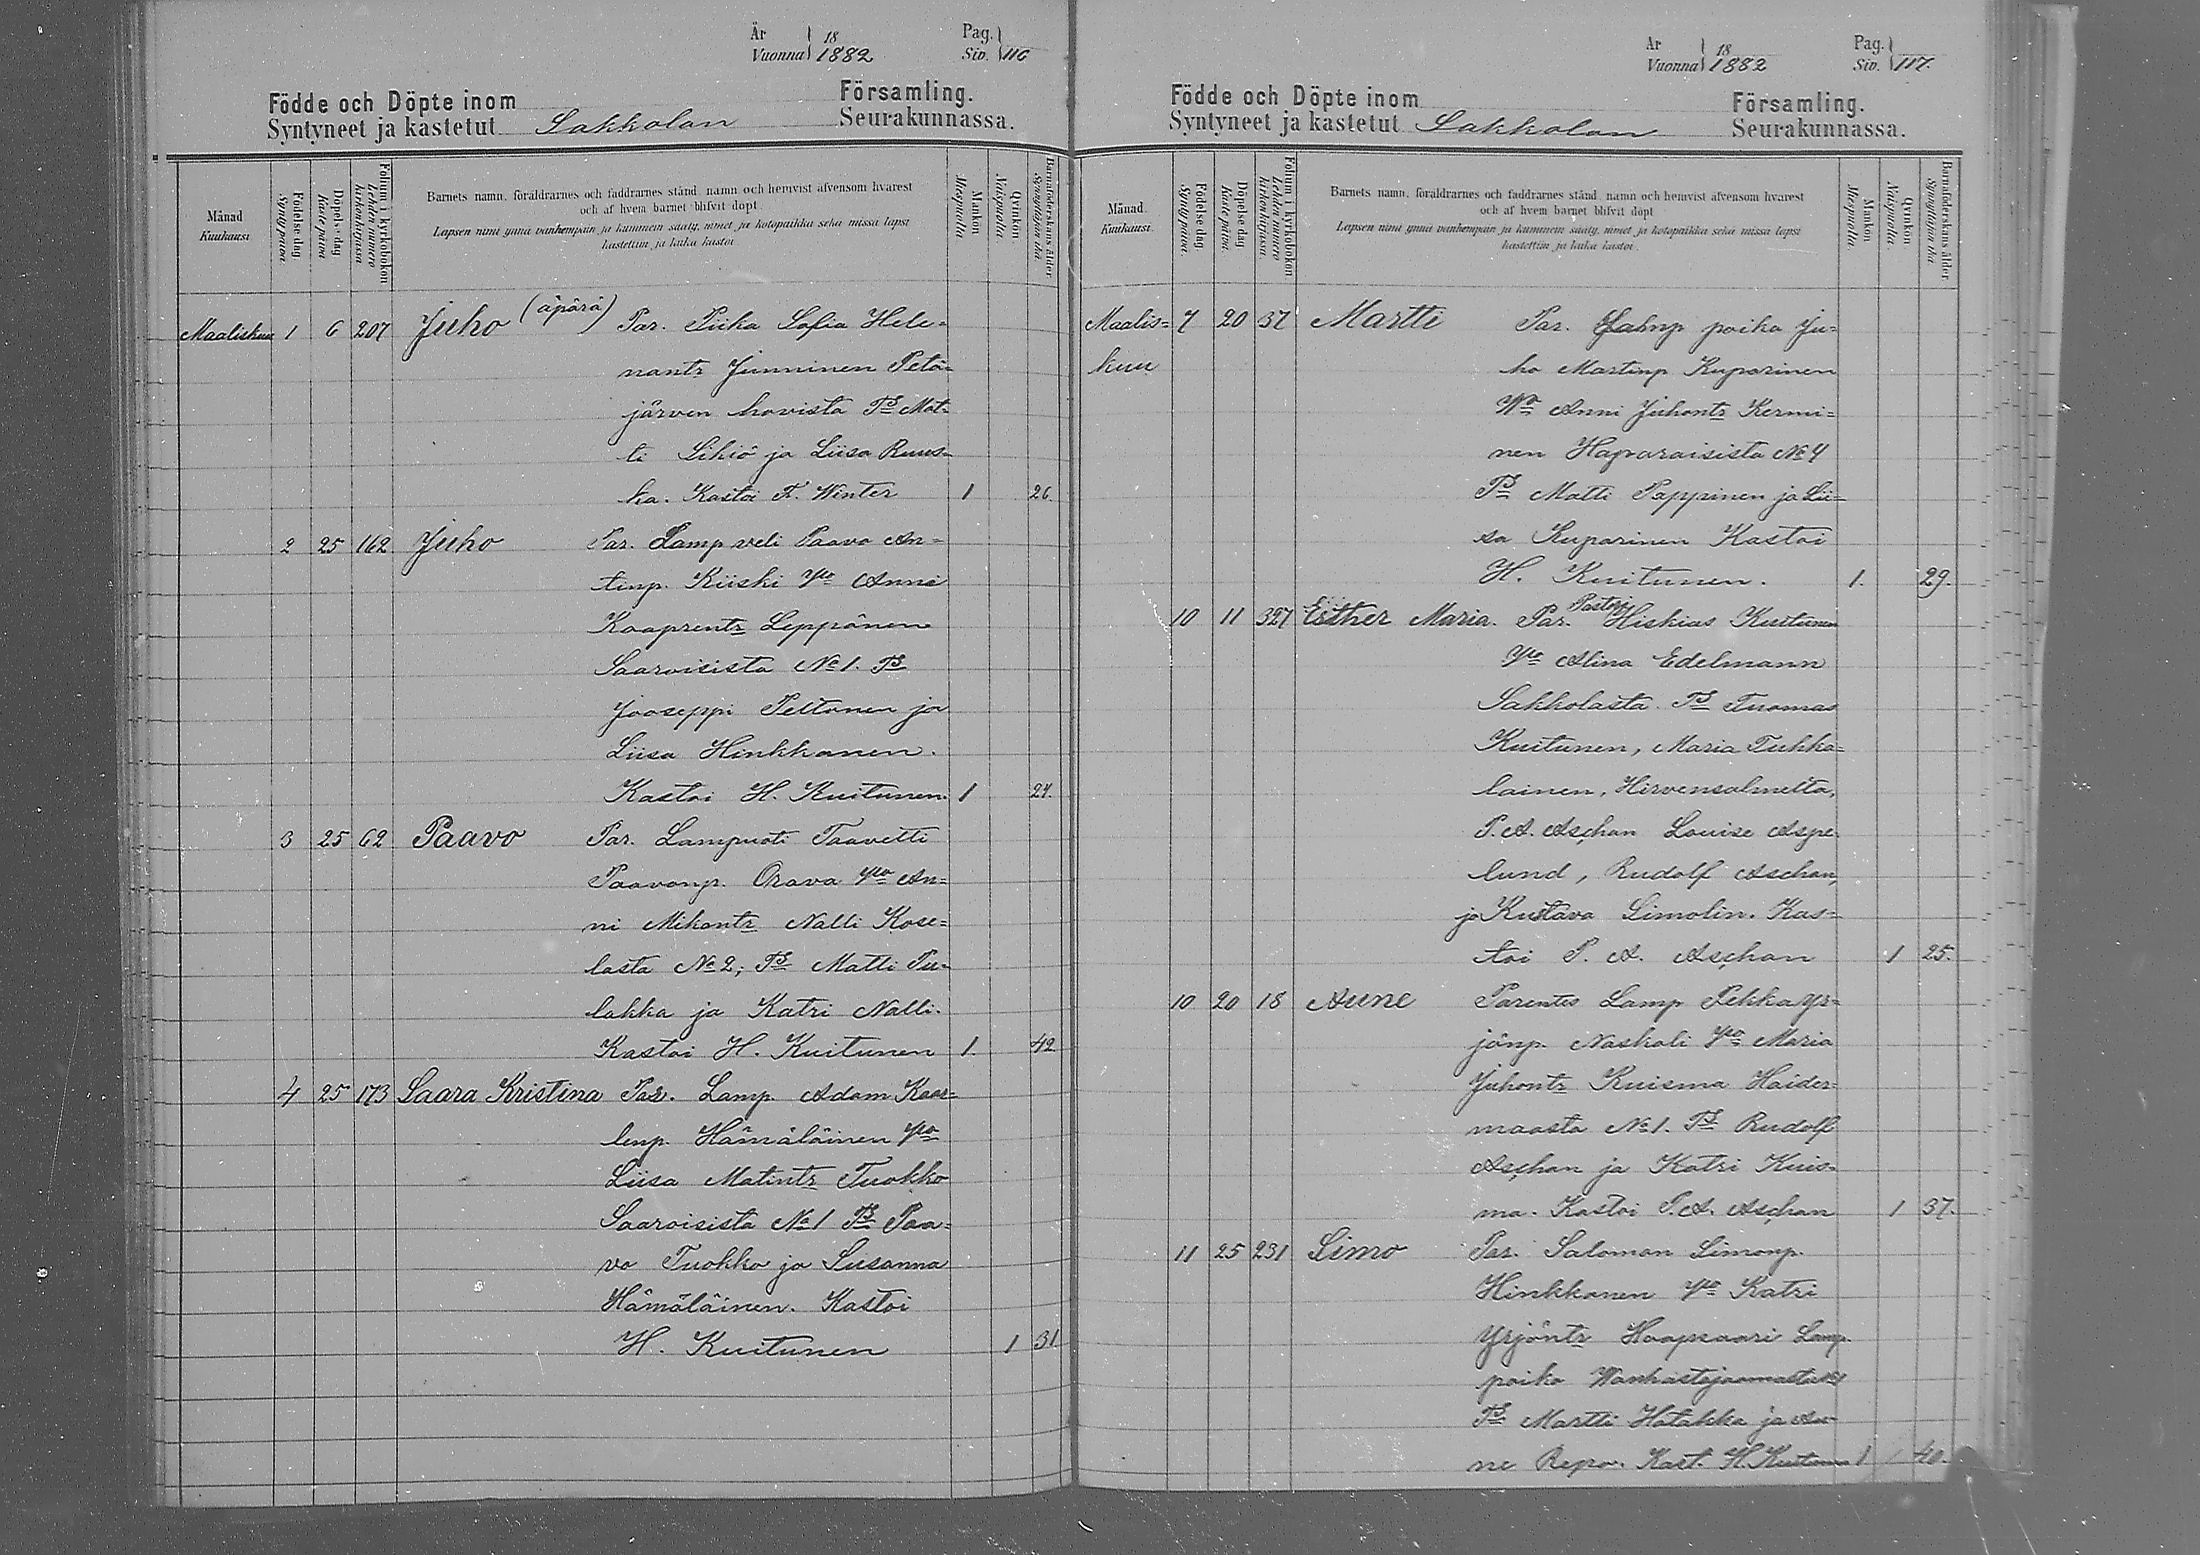 År 18
Vuonna 1882
Pag.
Siv. 116
Födde och Döpte inom Församling.
Syntyneet ja kastetut Sakkolan Seurakunnassa.
Månad
Kuukausi
Födelse dag
Synty päivä.
Döpelse dag
Kaste päivä.
Folium i kyrkoboken
Lehden numero
kirkonkirjassa
Barnets namn, föräldrarnes och faddrarnes stånd, namn och hemvist äfvensom hvarest
och af hvem barnet blifvit döpt.
Lapsen nimi ynnä vanhempain ja kummein sääty, nimet ja kotopaikka sekä missä lapsi
kastettiin ja kuka kastoi.
Mankön
Miespuolia
Qvinkön
Naispuolia
Barnaföderskans ålder
Synnyttäjän ikä
Maaliskuu 1 6 207 Juho (äpärä) Par. Piika Sofia Hele-
nantr Junninen Petä-
järven hovista Ts Mat-
ti Sihiö ja Liisa Ruus-
ka. Kastoi F. Winter 1 26.
2 25 162 Juho Par. Lamp veli Paavo An-
tinp. Kiiski Vro Anni
Kaaprentr Leppänen
Saaroisista No 1. Ts
Jooseppi Peltonen ja
Liisa Hinkkanen.
Kastoi H. Kuitunen 1 24.
3 25 62 Paavo Par. Lampuoti Taavetti
Paavonp. Orava Vro An-
ni Mikontr Nalli Kose-
lasta No 2; Ts Matti Pu-
lakka ja Katri Nalli.
Kastoi H. Kuitunen 1. 42
4 25 173 Saara Kristina Par. Lamp. Adam Kaar-
lenp. Hämäläinen Vro
Liisa Matintr Tuokko
Saaroisista No 1 Ts Paa-
vo Tuokko ja Susanna
Hämäläinen. Kastoi
H. Kuitunen 1 31
År 18
Vuonna 1882
Pag.
Siv. 117.
Födde och Döpte inom Församling.
Syntyneet ja kastetut Sakkolan Seurakunnassa.
Månad.
Kuukausi.
Födelse dag
Synty päivä.
Döpelse dag
Kaste päivä.
Folium i kyrkoboken
Lehden numero
kirkonkirjassa
Barnets namn, föräldrarnes och faddrarnes stånd, namn och hemvist äfvensom hvarest
och af hvem barnet blifvit döpt
Lapsen nimi ynnä vanhempain ja kummein sääty, nimet ja kotopaikka sekä missä lapsi
kastettiin ja kuka kastoi.
Mankön
Miespuolia.
Qvinkön
Naispuolia
Barnaföderskans ålder
Synnyttäjän ikä
Maalis- 7 20 37 Martti Par. Lamp poika Ju-
kuu ho Martinp Kuparinen
Vro Anni Juhontr Kermi-
nen Haparaisista No 4
Ts Matti Pappinen ja Lii-
sa Kuparinen Kastoi
H. Kuitunen. 1. 29.
10 11 327 Esther Maria. Par. Pastori Hiskias Kuitunen
Vro Alina Edelmann
Sakkolasta Ts Tuomas
Kuitunen, Maria Tuhka-
lainen, Hirvensalmelta,
P. A. Aschan Louise Aspe-
lund, Rudolf Aschan,
ja Kustava Limolin. Kas-
toi P. A. Aschan 1 25.
10 20 18 Aune Parentes Lamp Pekka Yr-
jönp. Naskali Vro Maria
Juhontr Kuisma Haider-
maasta No 1. Ts Rudolf
Aschan ja Katri Kuis-
ma. Kastoi P. A. Aschan 1 37.
11 25 231 Simo Par. Salomon Simonp.
Hinkkanen Vro Katri
Yrjöntr Haapsaari Lamp.
poika
Ts Martti Hatakka ja An-
ne Repo. Kast. H. Kuitunen 1 40.